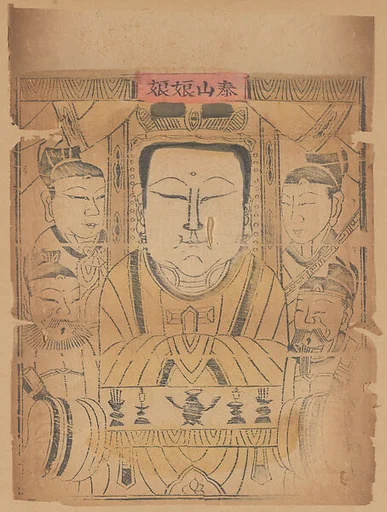 泰山娘娘